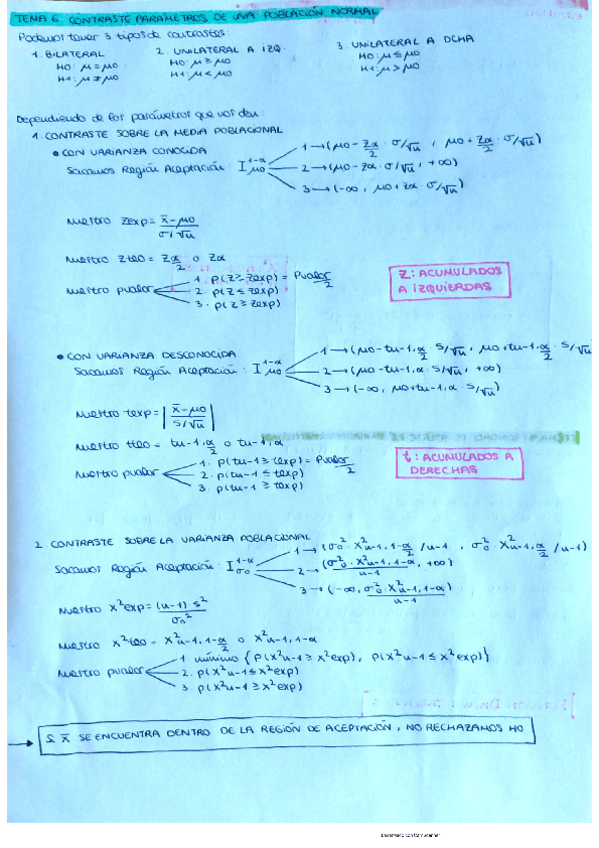 TEMA 6: CONTRASTE PARÁMETROS DE UNA POBLACIÓN NORMAL
Podemos tener 3 tipos de contrastes:
1. BILATERAL
H0: μ = μ0
H1: μ ≠ μ0
2. UNILATERAL A IZQ.
H0: μ ≥ μ0
H1: μ < μ0
3. UNILATERAL A DCHA
H0: μ ≤ μ0
H1: μ > μ0
Dependiendo de los parámetros que nos den:
1. CONTRASTE SOBRE LA MEDIA POBLACIONAL
• CON VARIANZA CONOCIDA
Sacamos Región Aceptación: I μ0 1-α
1 → (μ0 - Zα/2 · σ/√n , μ0 + Zα/2 · σ/√n)
2 → (μ0 - Zα · σ/√n , +∞)
3 → (-∞, μ0 + Zα · σ/√n)
Nuestro Zexp = x̄ - μ0 / σ/√n
Nuestro Zteo = Zα/2 o Zα
Nuestro pvalor
1. p(Z ≥ Zexp) = Pvalor/2
2. p(Z ≤ Zexp)
3. p(Z ≥ Zexp)
Z: ACUMULADOS
A IZQUIERDAS
• CON VARIANZA DESCONOCIDA
Sacamos Región Aceptación: I μ0 1-α
1 → (μ0 - tn-1, α/2 · S/√n , μ0 + tn-1, α/2 · S/√n)
2 → (μ0 - tn-1, α · S/√n , +∞)
3 → (-∞, μ0 + tn-1, α · S/√n)
Nuestro texp = | x̄ - μ0 / S/√n |
Nuestro tteo = tn-1, α/2 o tn-1, α
Nuestro pvalor
1. p(tn-1 ≥ texp) = Pvalor/2
2. p(tn-1 ≤ texp)
3. p(tn-1 ≥ texp)
t: ACUMULADOS A
DERECHAS
2. CONTRASTE SOBRE LA VARIANZA POBLACIONAL
Sacamos Región Aceptación: I σ0 1-α
1 → (σ0² · X²n-1, 1-α/2 / n-1 , σ0² · X²n-1, α/2 / n-1)
2 → (σ0² · X²n-1, 1-α / n-1 , +∞)
3 → (-∞, σ0² · X²n-1, 1-α / n-1)
Nuestro x²exp = (n-1) s² / σ0²
Nuestro x²teo = X²n-1, 1-α/2 o X²n-1, 1-α
Nuestro pvalor
1. mínimo { P(X²n-1 ≥ x²exp), P(X²n-1 ≤ x²exp) }
2. p(X²n-1 ≤ x²exp)
3. p(X²n-1 ≥ x²exp)
Si x̄ SE ENCUENTRA DENTRO DE LA REGIÓN DE ACEPTACIÓN, NO RECHAZAMOS H0